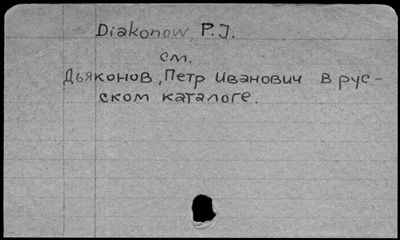 Diakonow, P.J.
см.
Дьяконов, Петр Иванович в рус-
ском каталоге.